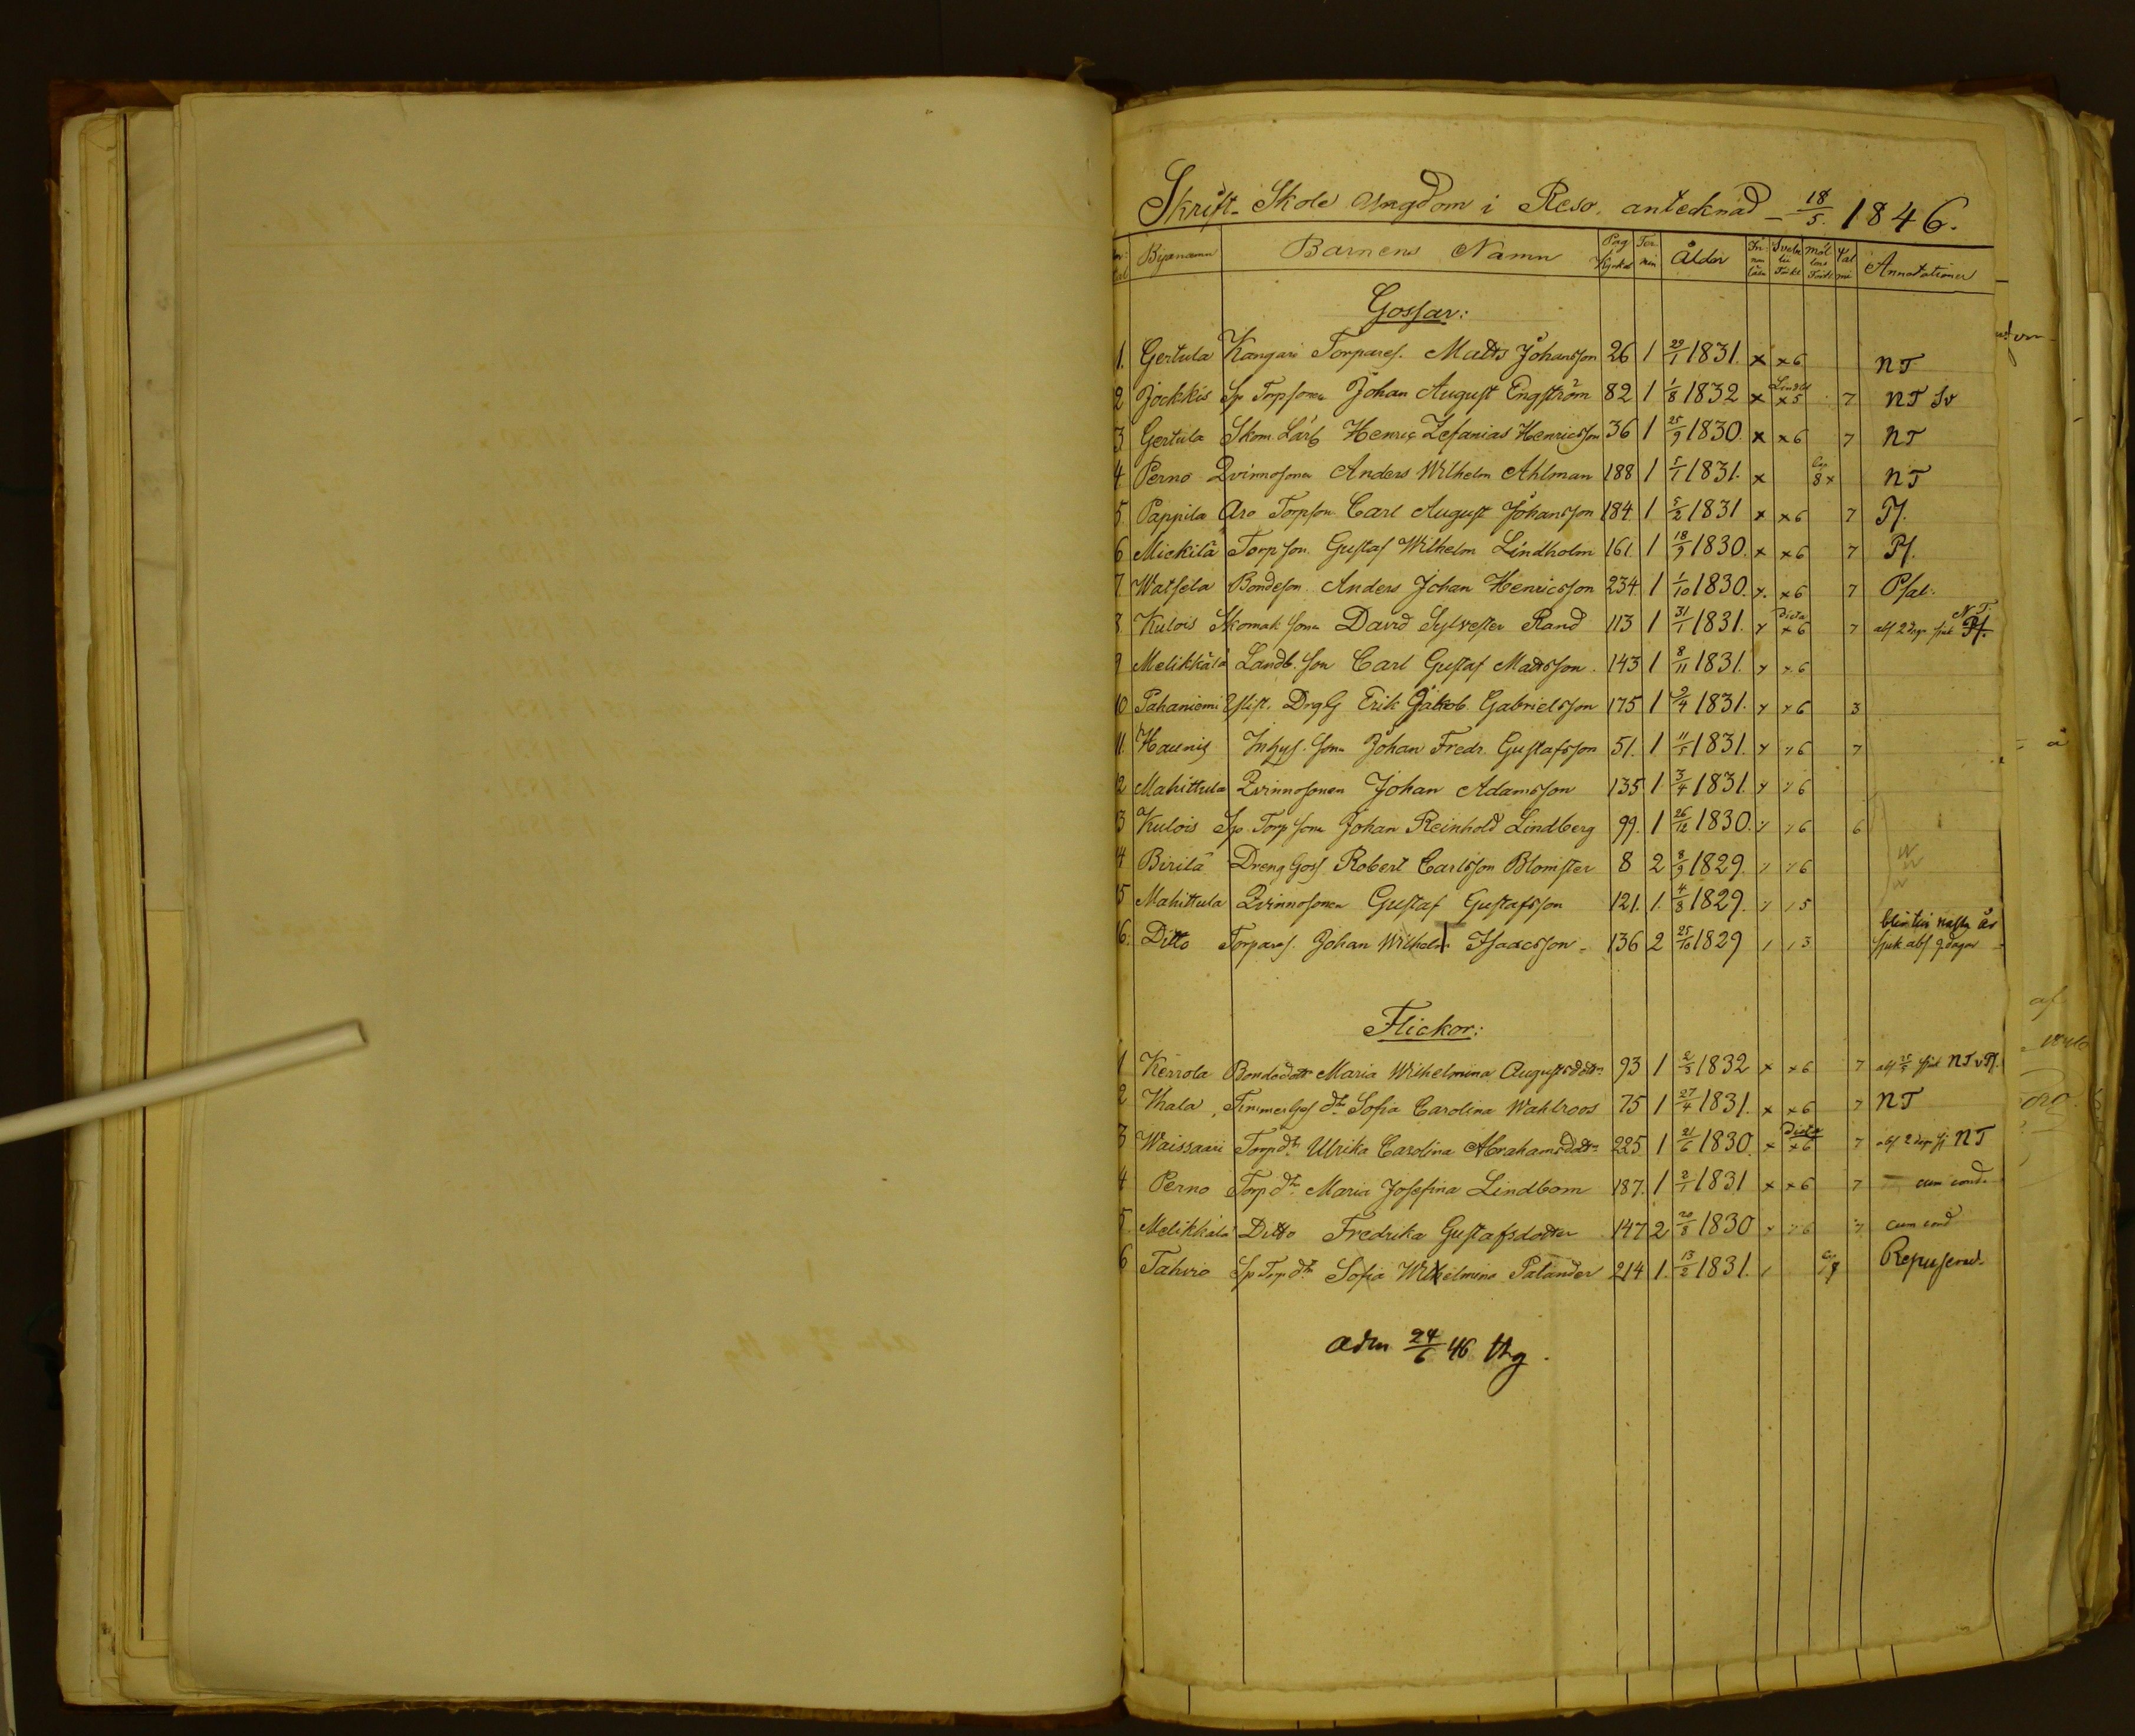 Skrift-Skole Ungdom i Reso. antecknad - 18/5. 1846.
Byanamn Barnens Namn Pag Kyrkob Ter min Ålder In nan läsn Svebe lii Förkl Möl lers Förkl Psal mi Annotationer
Gossar:
1. Gertula Kangari Torpares. Matts Johansson 26 1 29/1 1831. x x 6 NT
2 Jockkis Sp Torpsonen Johan August Engström 82 1 1/8 1832 x x 5 7 NT Sv
3 Gertula Skom. Lärl Henric Zefanias Henricsson 36 1 25/9 1830. x x 6 7 NT
4 Perno Qvinnosonen Anders Wilhelm Ahlman 188 1 5/1 1831. x 8 x NT
5. Pappila Aro Torpson Carl August Johansson 184 1 5/2 1831 x x 6 7 Ps.
6 Mickilä Torpson. Gustaf Wilhelm Lindholm 161. 1 18/9 1830. x x 6 7 Ps.
7. Watsela Bondeson. Anders Johan Henricsson 234. 1 1/10 1830. x. x 6 7 Psal.
8. Kulois Skomak sonen David Sylvester Rand 113 1 31/1 1831. x x 6 7 abs 2 dagar sjuk N.T. Ps.
9 Melikkälä Landb. son Carl Gustaf Mattsson. 143 1 8/11 1831. x x 6
10 Pahaniemi DrgG Erik Jakob Gabrielsson 175 1 9/4 1831. x x 6 3
11. Haunis Inhys. Sonen Johan Fredr. Gustafsson 51. 1 11/5 1831. x x 6 7
12 Mahittula Qvinnosonen Johan Adamsson 135 1 3/4 1831. x x 6
13 Kulois Sp. Torp Sonen Johan Reinhold Lindberg 99. 1 26/12 1830. x x 6 6
14 Birilä Dreng Goss Robert Carlsson Blomster 8 2 8/9 1829. x x 6
15 Mahittula Qvinnosonen Gustaf Gustafsson 121. 1. 4/3 1829. x / 5
16. Ditto Torpares. Johan Wilhelm Isaacsson - 136 2 25/10 1829 / / 3 nästa År sjuk abs 9 dagar
Flickor:
1 Kerrola Bondedottr Maria Wilhelmina Augustsdottr 93 1 2/3 1832 x x 6 7 NT v Ps.
2 Ihala Timmerges dtr Sofia Carolina Wahlroos 75 1 27/4 1831. x x 6 7 NT
3 Waissaari Torpdtr Ulrika Carolina Abrahamsdottr 225 1 21/6 1830. x x 6 7 abs 2 dagar sj NT
4 Perno Torp dtr Maria Josefina Lindbom 187. 1 2/1 1831 x x 6 7 - cum cond.
5. Melikkälä Ditto Fredrika Gustafsdotter 147 2 20/8 1830 x x 6 7 cum cond
6 Tahvio Sp Torp dtr Sofia Wilhelmina Palander 214 1. 13/2 1831. /
adm 24/6 46 thg.